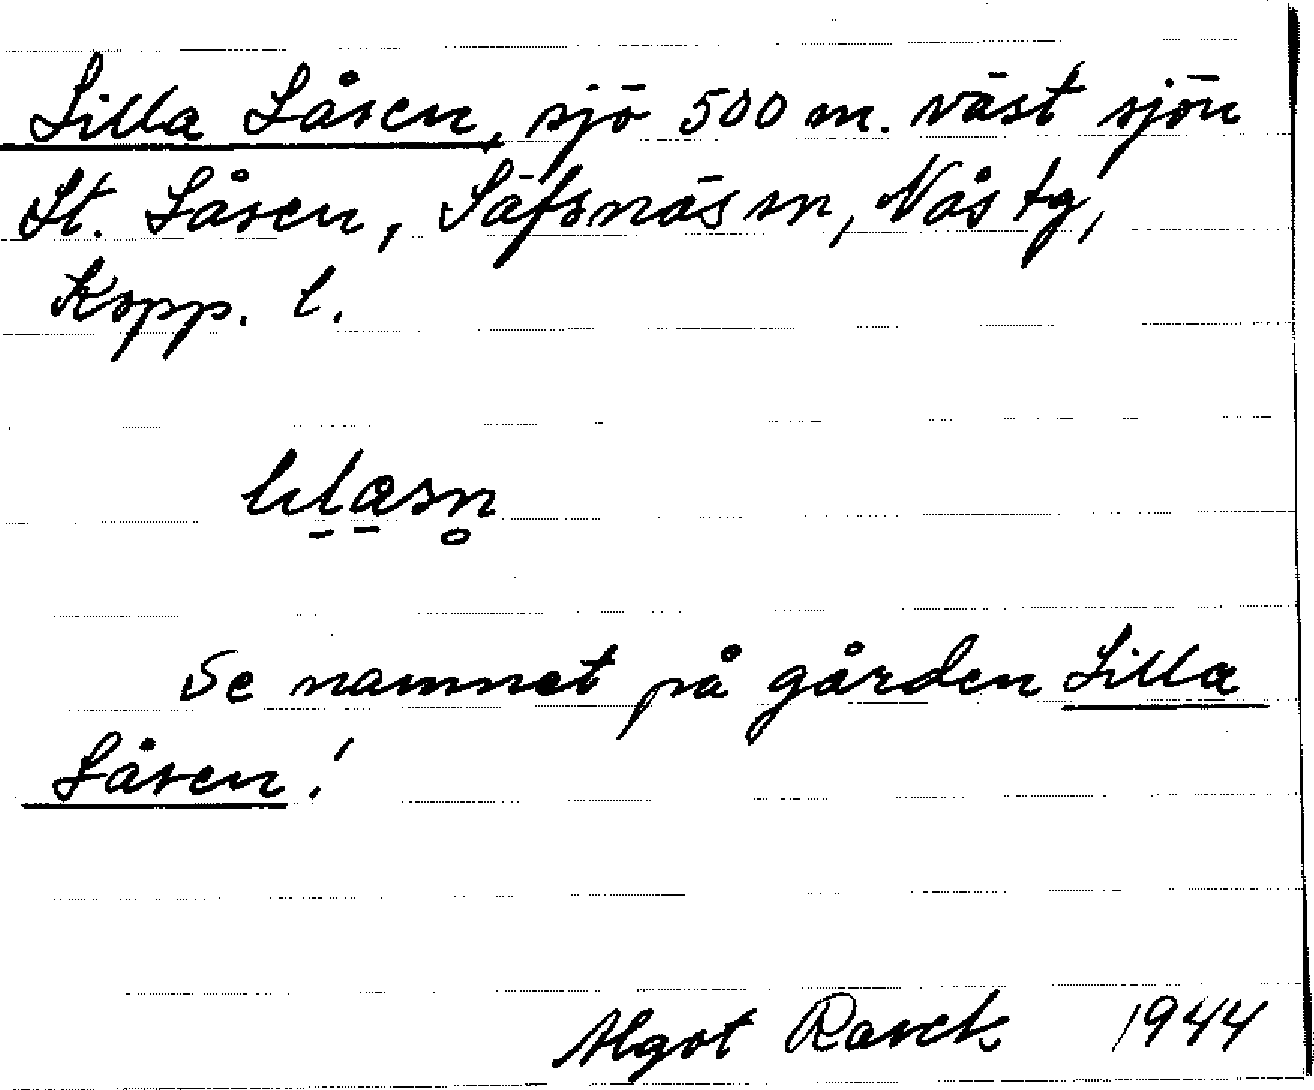 Lilla Låsen, sjö 500 m. väst sjön
St. Låsen, Säfsnäs sn, Nås tg,
Kopp. l.
Se namnet på gården Lilla
Låsen!
Algot Rasck 1944